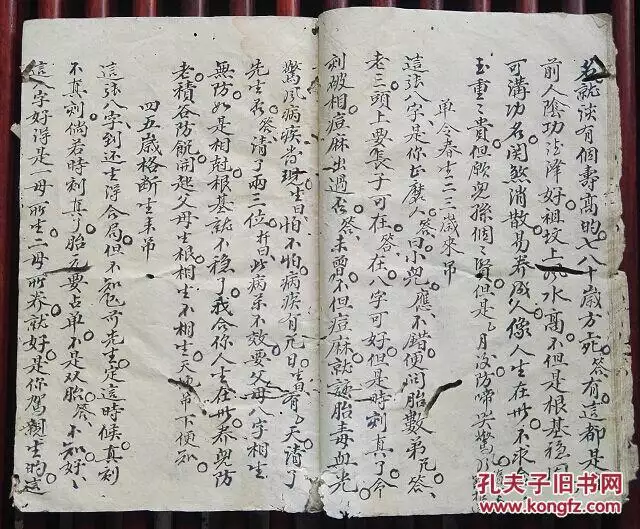 老就談有個壽高的七八十歲方死答有這都是
前人陰功法澤好祖坟上風水高不但是根基穩固
可講功名関煞消散易养成人像人生在世不求金
玉重重貴但願兒孫個個賢但是月没防啼哭驚
单令春吉二三歲來吊
這張八字是你正麽人答曰小兒應不錯便问胎數弟几答
老三頭上要長子可在答在八字可好但是時刻真了今
刺破相痘麻出過否答未曾不但痘麻就該胎毒血光
驚风病疾当現生日怕不怕病疾有几日看有天請了
先生否答请了兩三位并曰此病藥不效要父母八字相生
無防如是相尅根基就不穩了我合你人生在世养兒防
老積谷防飢開起父母生根相生不相生天便吊下便知
四五歲格断生来吊
這張八字到还生浮合局但不知可先生定這時候真刻
不真刻倘若時刻真了胎元要占单不是双胎答不知好
這八字好淂是一母所生二母所养就好是你駕親生的這
孔夫子旧书网
KONGFZ.COM